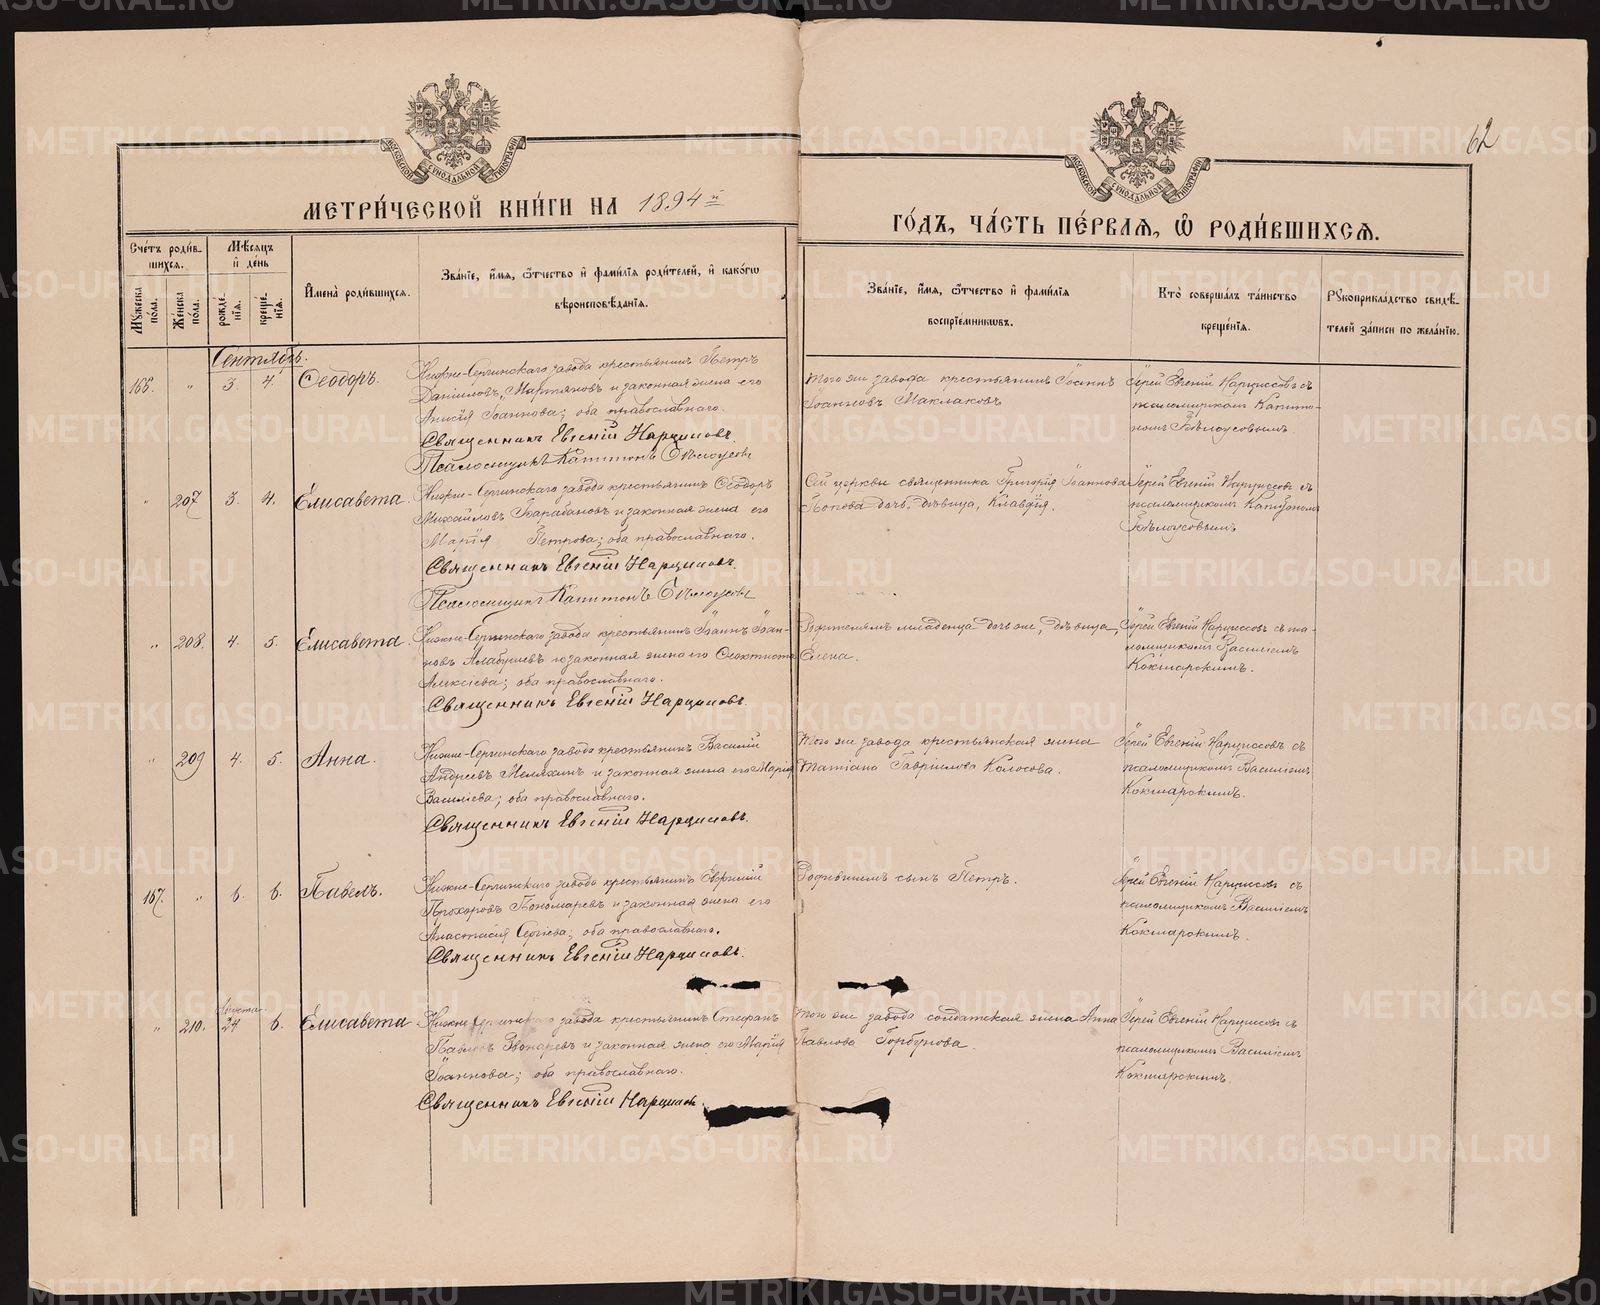 МЕТРИ́ЧЕСКОЙ КНИ́ГИ НА 1894й
ГО́ДЪ, ЧА́СТЬ ПЕ́РВАЯ, Ѿ РОДИ́ВШИХСЯ.
62
МОСКОВСКОЙ СУНОДАЛЬНОЙ ТИПОГРАФІИ
МОСКОВСКОЙ СУНОДАЛЬНОЙ ТИПОГРАФІИ
Сче́тъ роди́в-
шихся.
Мѣсяцъ
и́ де́нь
Мꙋ́жеска по́ла.
Же́нска по́ла.
рожде́-
нія.
креще́-
нія.
И҆мена̀ роди́вшихся.
Зва́ніе, и҆́мя, ѻ҆́тчество и҆ фами́лія роди́телей, и҆ како́гѡ
вѣроисповѣ́данія.
Зва́ніе, и҆́мя, ѻ҆́тчество и҆ фами́лія
воспріе́мникѡвъ.
Кто̀ соверша́лъ та́инство
креще́нія.
Рꙋкоприкла́дство свидѣ́-
телей за́писи по жела́нію.
Сентябрь.
165. „ 3. 4. Ѳеодоръ.
Нижне-Сергинскаго завода крестьянинъ Петръ
Даніиловъ Мартяновъ и законная жена его
Анисія Іоаннова; оба православнаго.
Священникъ Евгеній Нарциссовъ.
Псаломщикъ Капитонъ Бѣлоусовъ
Того же завода крестьянинъ Іоаннъ
Іоанновъ Маклаковъ
Іерей Евгеній Нарциссовъ съ
псаломщикомъ Капито-
номъ Бѣлоусовымъ.
„ 207 3. 4. Елисавета.
Нижне-Сергинскаго завода крестьянинъ Ѳеодоръ
Михайловъ Барабановъ и законная жена его
Марія Петрова; оба православнаго.
Священникъ Евгеній Нарциссовъ.
Псаломщикъ Капитонъ Бѣлоусовъ
Сей церкви священника Григорія Іоаннова
Попова дочь, дѣвица, Клавдія.
Іерей Евгеній Нарциссовъ съ
псаломщикомъ Капитономъ
Бѣлоусовымъ
„ 208. 4. 5. Елисавета.
Нижне-Сергинскаго завода крестьянинъ Іоаннъ Іоан-
новъ Алабушевъ и законная жена его Ѳеоктиста
Алексіева; оба православнаго.
Священникъ Евгеній Нарциссовъ.
Родителямъ младенца дочь же, дѣвица,
Елена.
Іерей Евгеній Нарциссовъ съ пса-
ломщикомъ Василіемъ
Кокшарскимъ.
„ 209 4. 5. Анна.
Нижне-Сергинскаго завода крестьянинъ Василій
Андреевъ и законная жена его Марія
Василіева; оба православнаго.
Священникъ Евгеній Нарциссовъ.
Того же завода крестьянская жена
Татіана Гавріилова Колосова.
Іерей Евгеній Нарциссовъ съ
псаломщикомъ Василіемъ
Кокшарскимъ.
167. „ 6. 6. Павелъ.
Нижне-Сергинскаго завода крестьянинъ
Прохоровъ Пономаревъ и законная жена его
Анастасія Сергіева; оба православнаго.
Священникъ Евгеній Нарциссовъ.
сынъ Петръ.
Іерей Евгеній Нарциссовъ съ
псаломщикомъ Василіемъ
Кокшарскимъ.
Августа
„ 210. 24 6. Елисавета
Нижне-Сергинскаго завода крестьянинъ Стефанъ
Павловъ и законная жена его Марія
Іоаннова; оба православнаго.
Священникъ Евгеній Нарциссовъ
Того же завода солдатская жена Анна
Павлова Горбунова.
Іерей Евгеній Нарциссовъ съ
псаломщикомъ Василіемъ
Кокшарскимъ.
METRIKI.GASO-URAL.RU